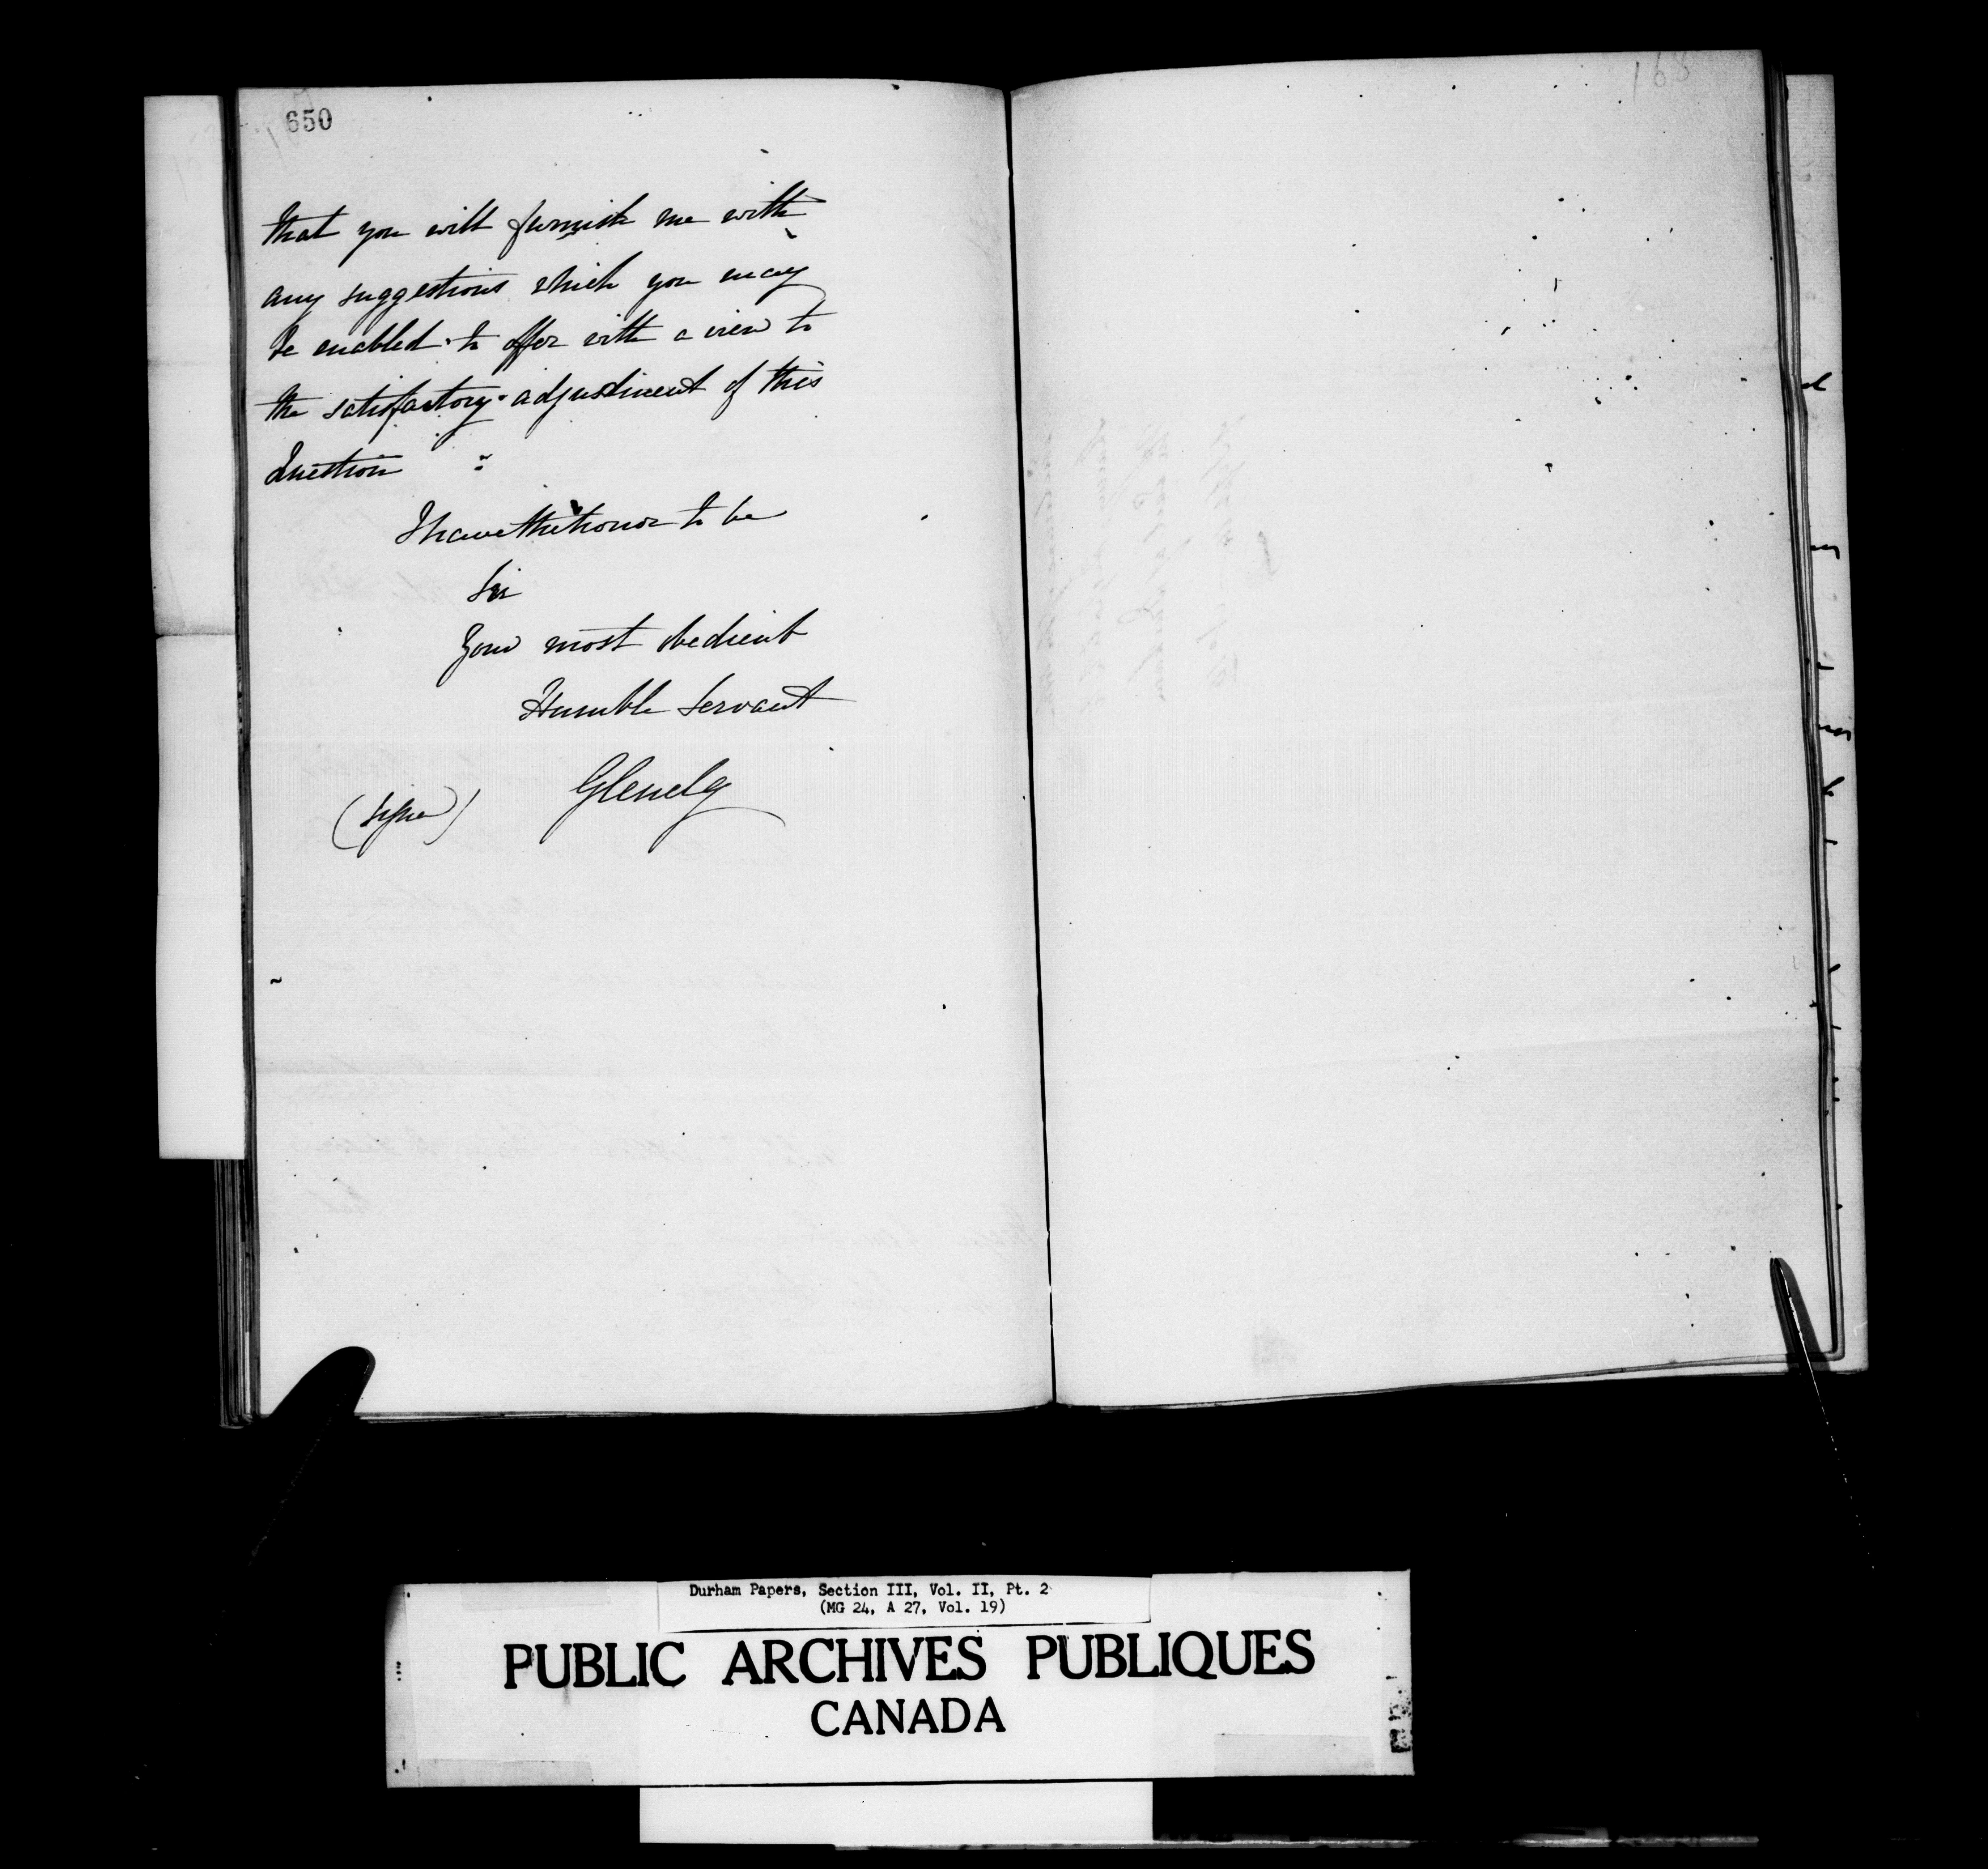 650
168
that you will furnish me with
any suggestions which you may
be enabled to offer with a view to
the satisfactory adjustment of this
Question
I have the honor to be
Sir
Your most obedient
Humble Servant
(Signed) Glenelg
Durham Papers, Section III, Vol. II, Pt. 2
(MG 24, A 27, Vol. 19)
PUBLIC ARCHIVES PUBLIQUES
CANADA